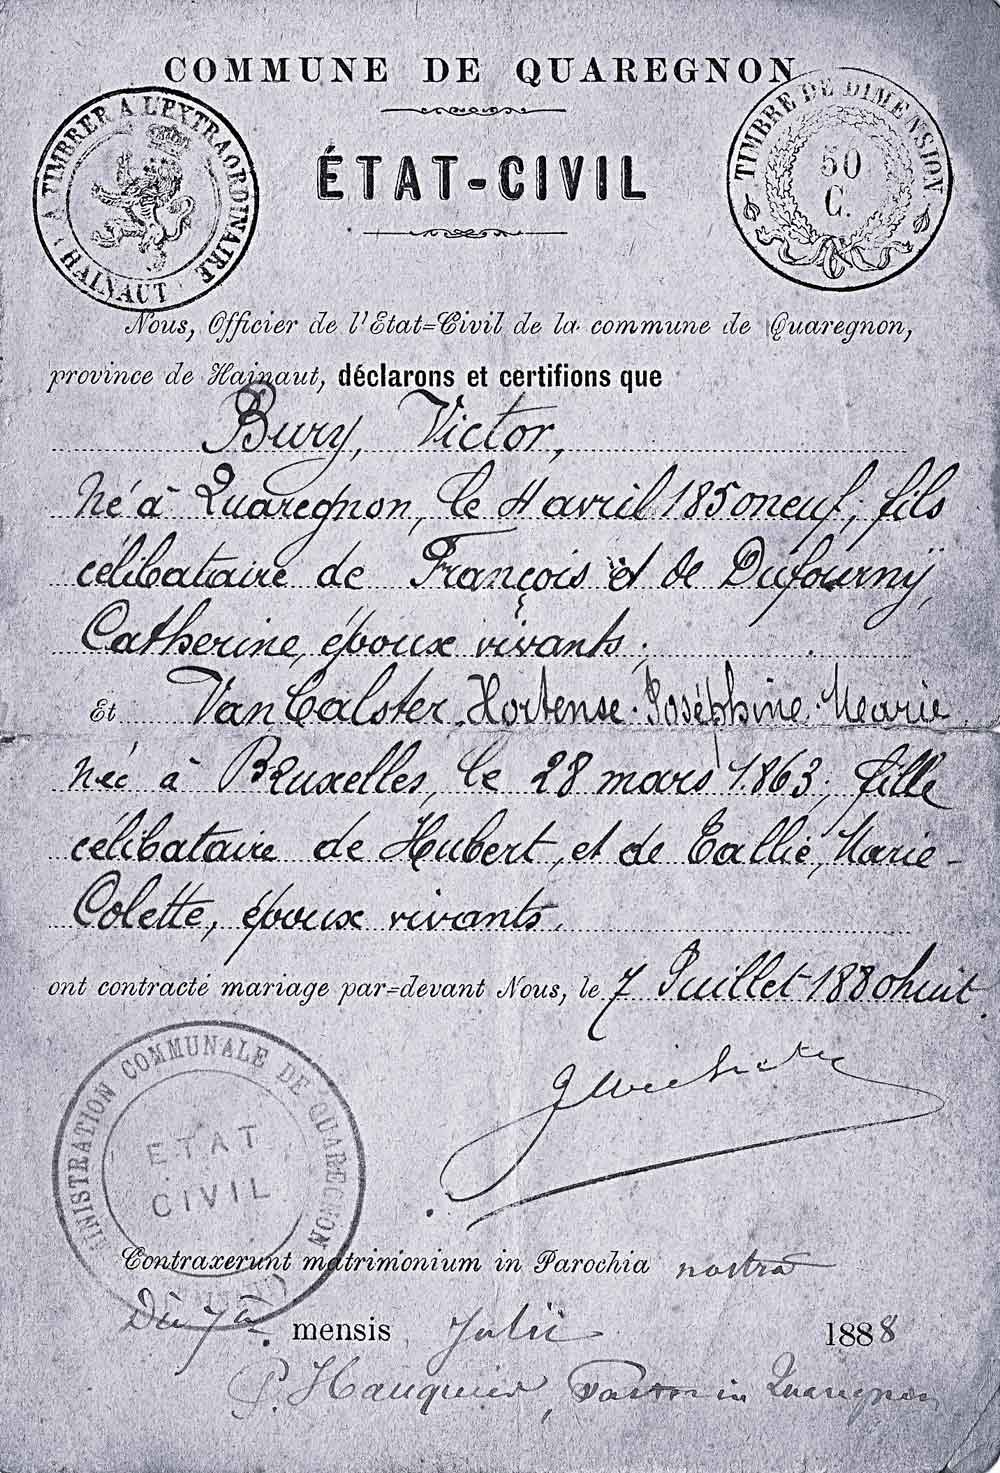 COMMUNE DE QUAREGNON
A TIMBRER A L'EXTRAORDINAIRE
HAINAUT
TIMBRE DE DIMENSION
50
C.
ÉTAT-CIVIL
Nous, Officier de l'Etat=Civil de la commune de Quaregnon,
province de Hainaut, déclarons et certifions que
Bury, Victor,
né à Quaregnon, le 4 avril 1850neuf, fils
célibataire de François et de Dufourny,
Catherine, époux vivants;
Et Van Calster, Hortense-Joséphine-Marie
née à Bruxelles, le 28 mars 1863, fille
célibataire de Hubert, et de Callie, Marie-
Colette, époux vivants.
ont contracté mariage par=devant Nous, le 7 Juillet 1880huit.
MINISTRATION COMMUNALE DE QUAREGNON
ETAT
CIVIL
Contraxerunt matrimonium in Parochia nostra
Die 7a mensis Julii 1888
Pastor in Quaregnon